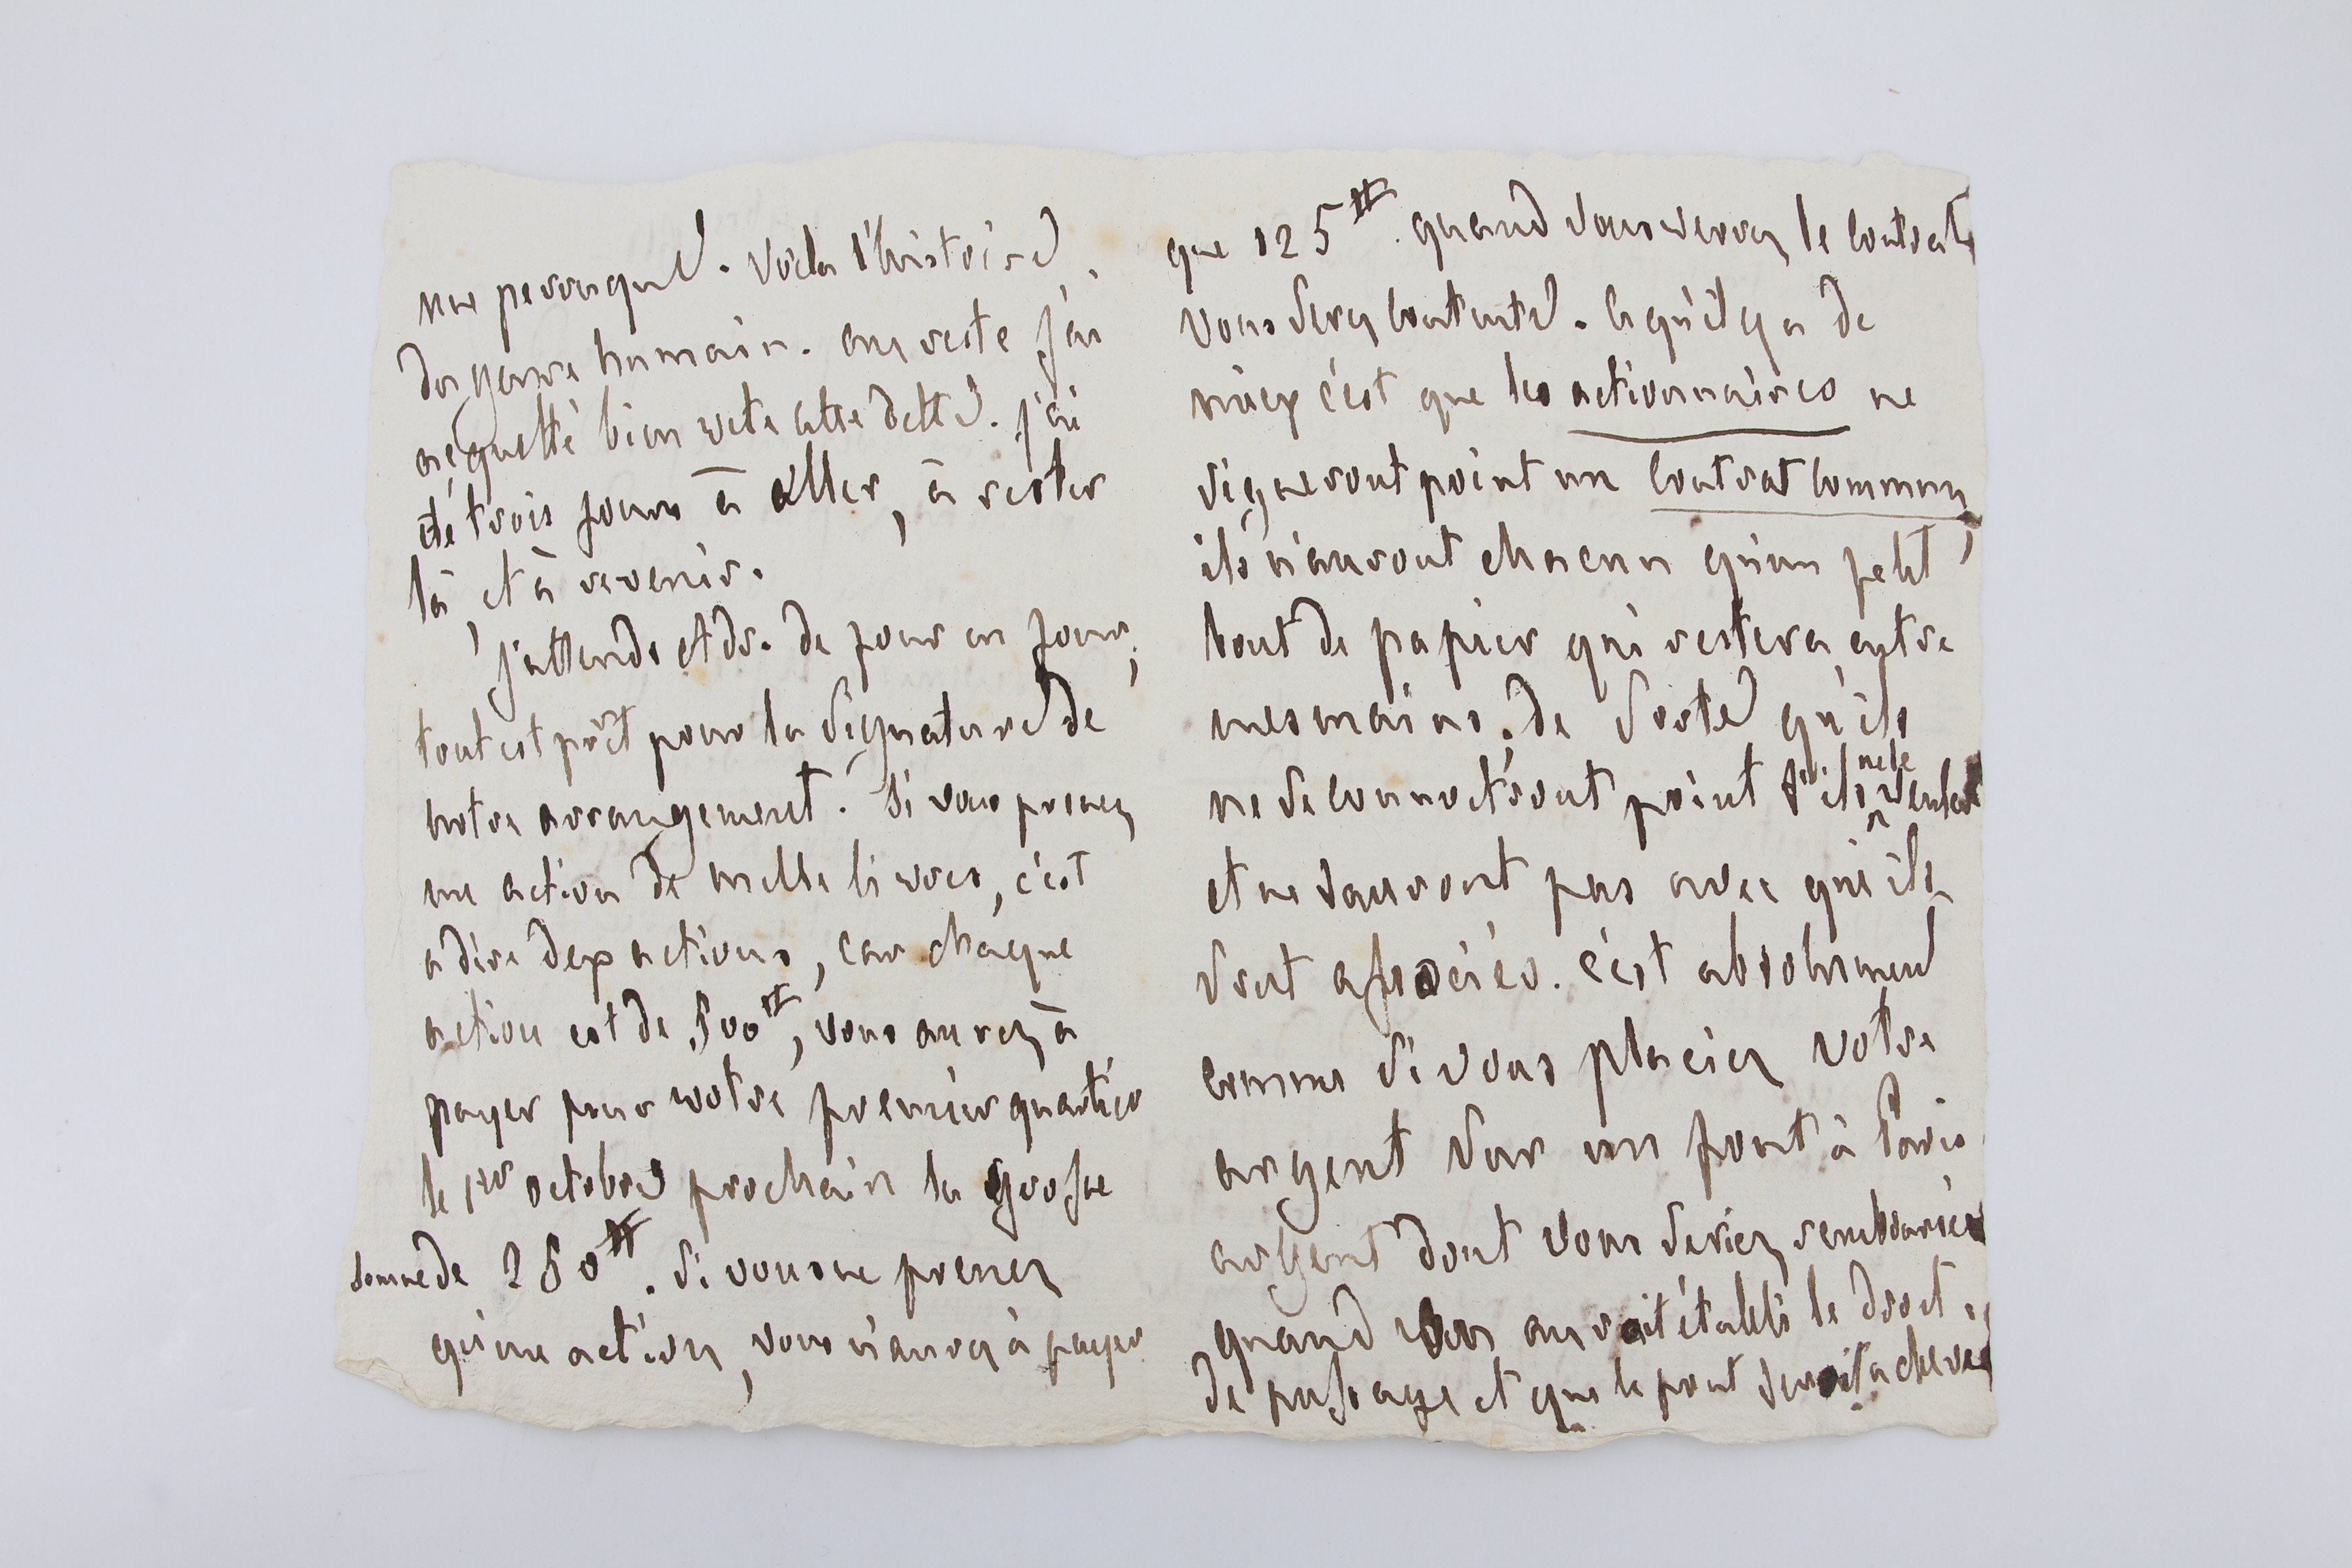 une perruque. voila l'histoire
du genre humain. au reste j'ai
acquitté bien vite cette dette. j'ai
été trois jours à aller, à rester
là, et à revenir.
j'attends etds. de jour en jour;
tout est prêt pour la signature de
notre arrangement. si vous prenez
une action de mille livres, c'est
a dire deux actions, car chaque
action est de 500ᵗᵗ, vous aurez à
payer pour votre premier quartier
le 1er octobre prochain la grosse
somme de 250ᵗᵗ. si vous ne prenez
qu'une action, vous n'aurez à payer
que 125ᵗᵗ. quand vous verrez le contrat
vous serez contente. ce qu'il y a de
mieux c'est que les actionnaires ne
signeront point un contrat commun,
ils n'auront chacun qu'un petit
bout de papier qui restera entre
mes mains; de sorte qu'ils
ne se connoitront point s'ils ne le veulent
et ne sauront pas avec qui ils
sont associés. c'est absolument
comme si vous placiez votre
argent sur un pont à Paris
argent dont vous seriez remboursée
quand on auroit établi le droit
de passage et que le pont seroit achevé